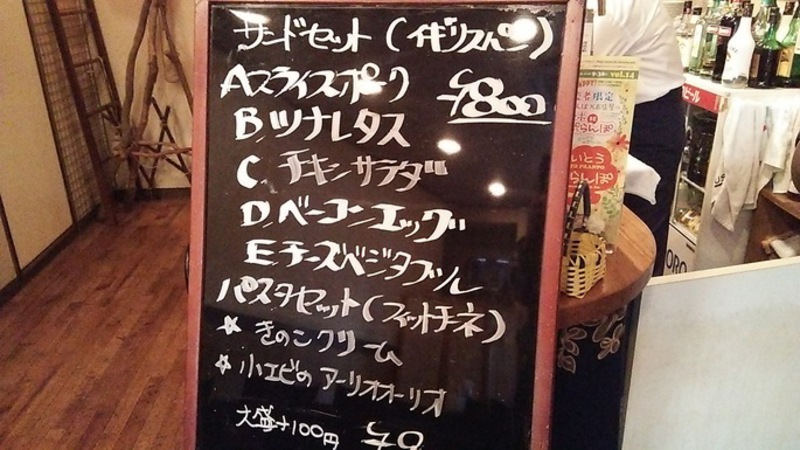 サンドセット(イギリスパン)
Aスライスポーク ¥800
B.ツナレタス
C.チキンサラダ
D.ベーコンエッグ
E.チーズベジタブル
パスタセット(フィットチネ)
☆ きのこクリーム
☆ 小エビのアーリオオーリオ
大盛+100円
vol.14
らんぽ
いとう
らんぽ
ビール